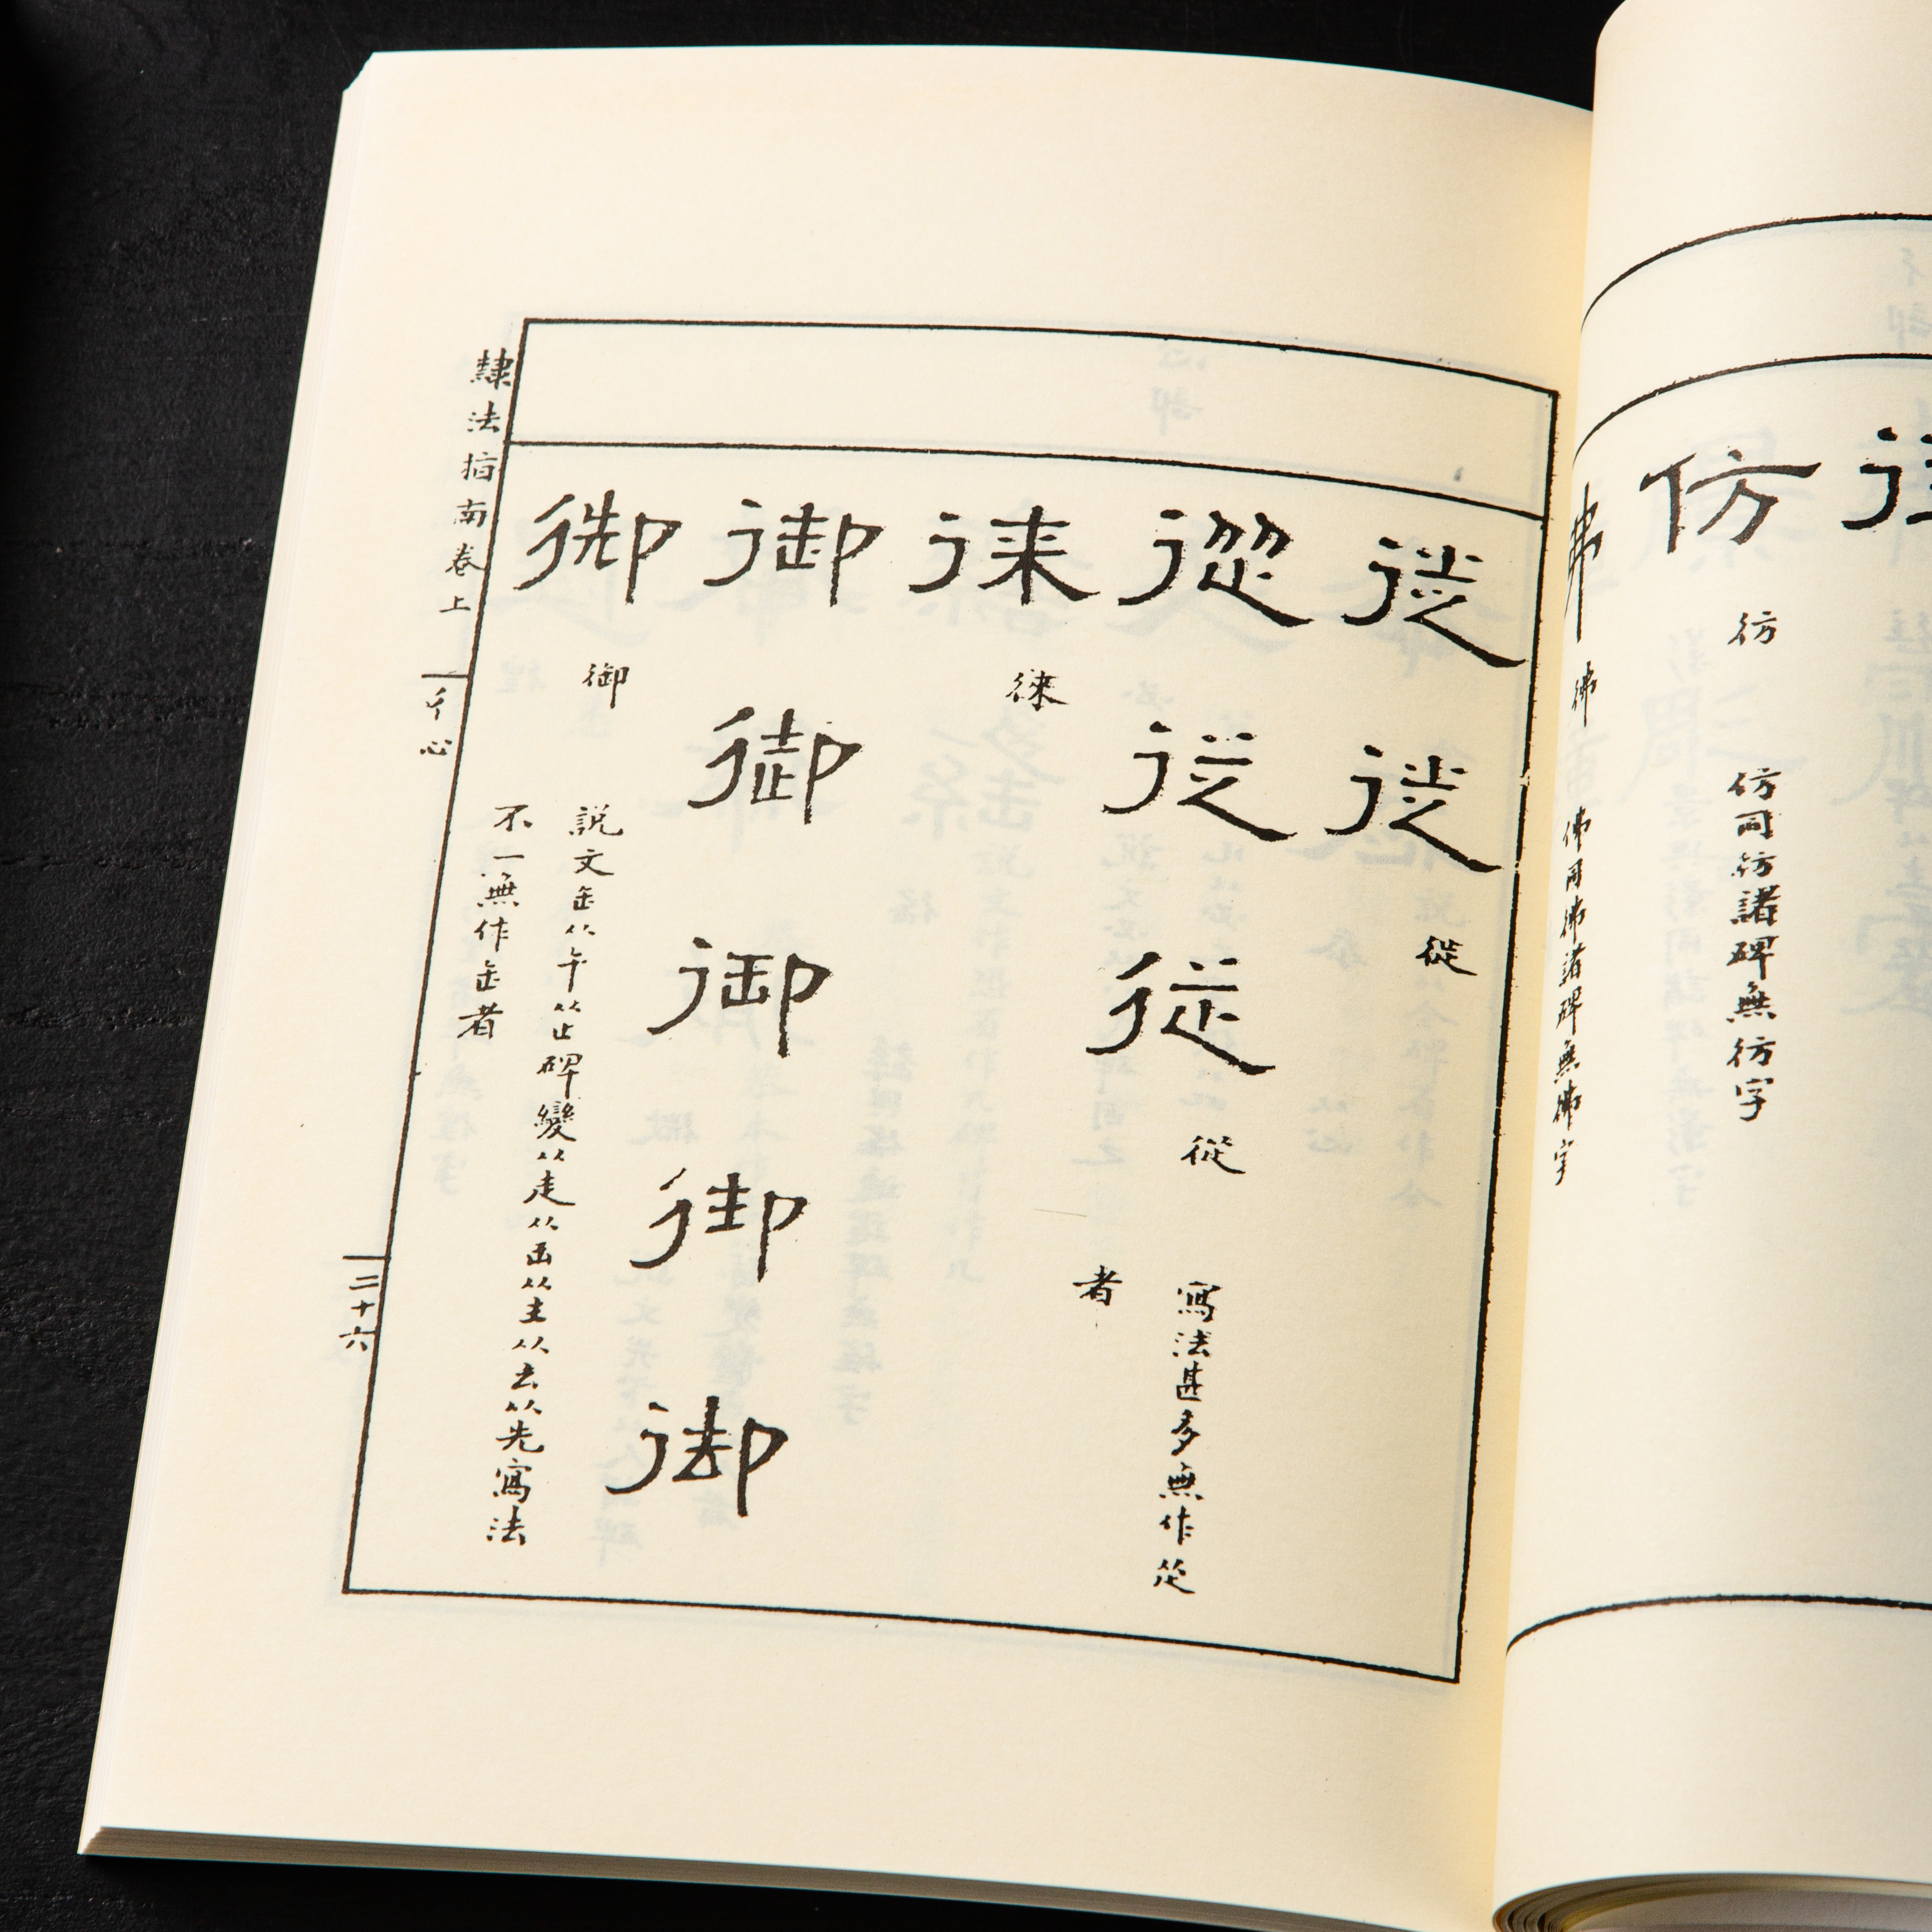 仿
彷
仿同彷諸碑無彷字
彿
佛同彿諸碑無彿字
從
從
從
從
從
從
寫法甚多無作從
者
徠
徠
御
御
御
御
御
御
御
説文缷从午从止碑變从走从缶从主从去从先寫法
不一無作缷者
隸法指南卷上
彳心
二十六